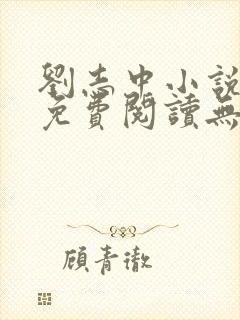 劉志中小說
免費閱讀無
顧青澈